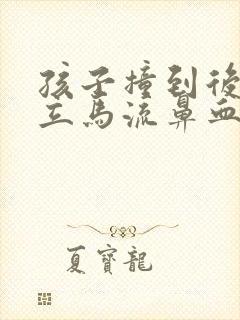 孩子撞到後
立馬流鼻血
夏寶龍